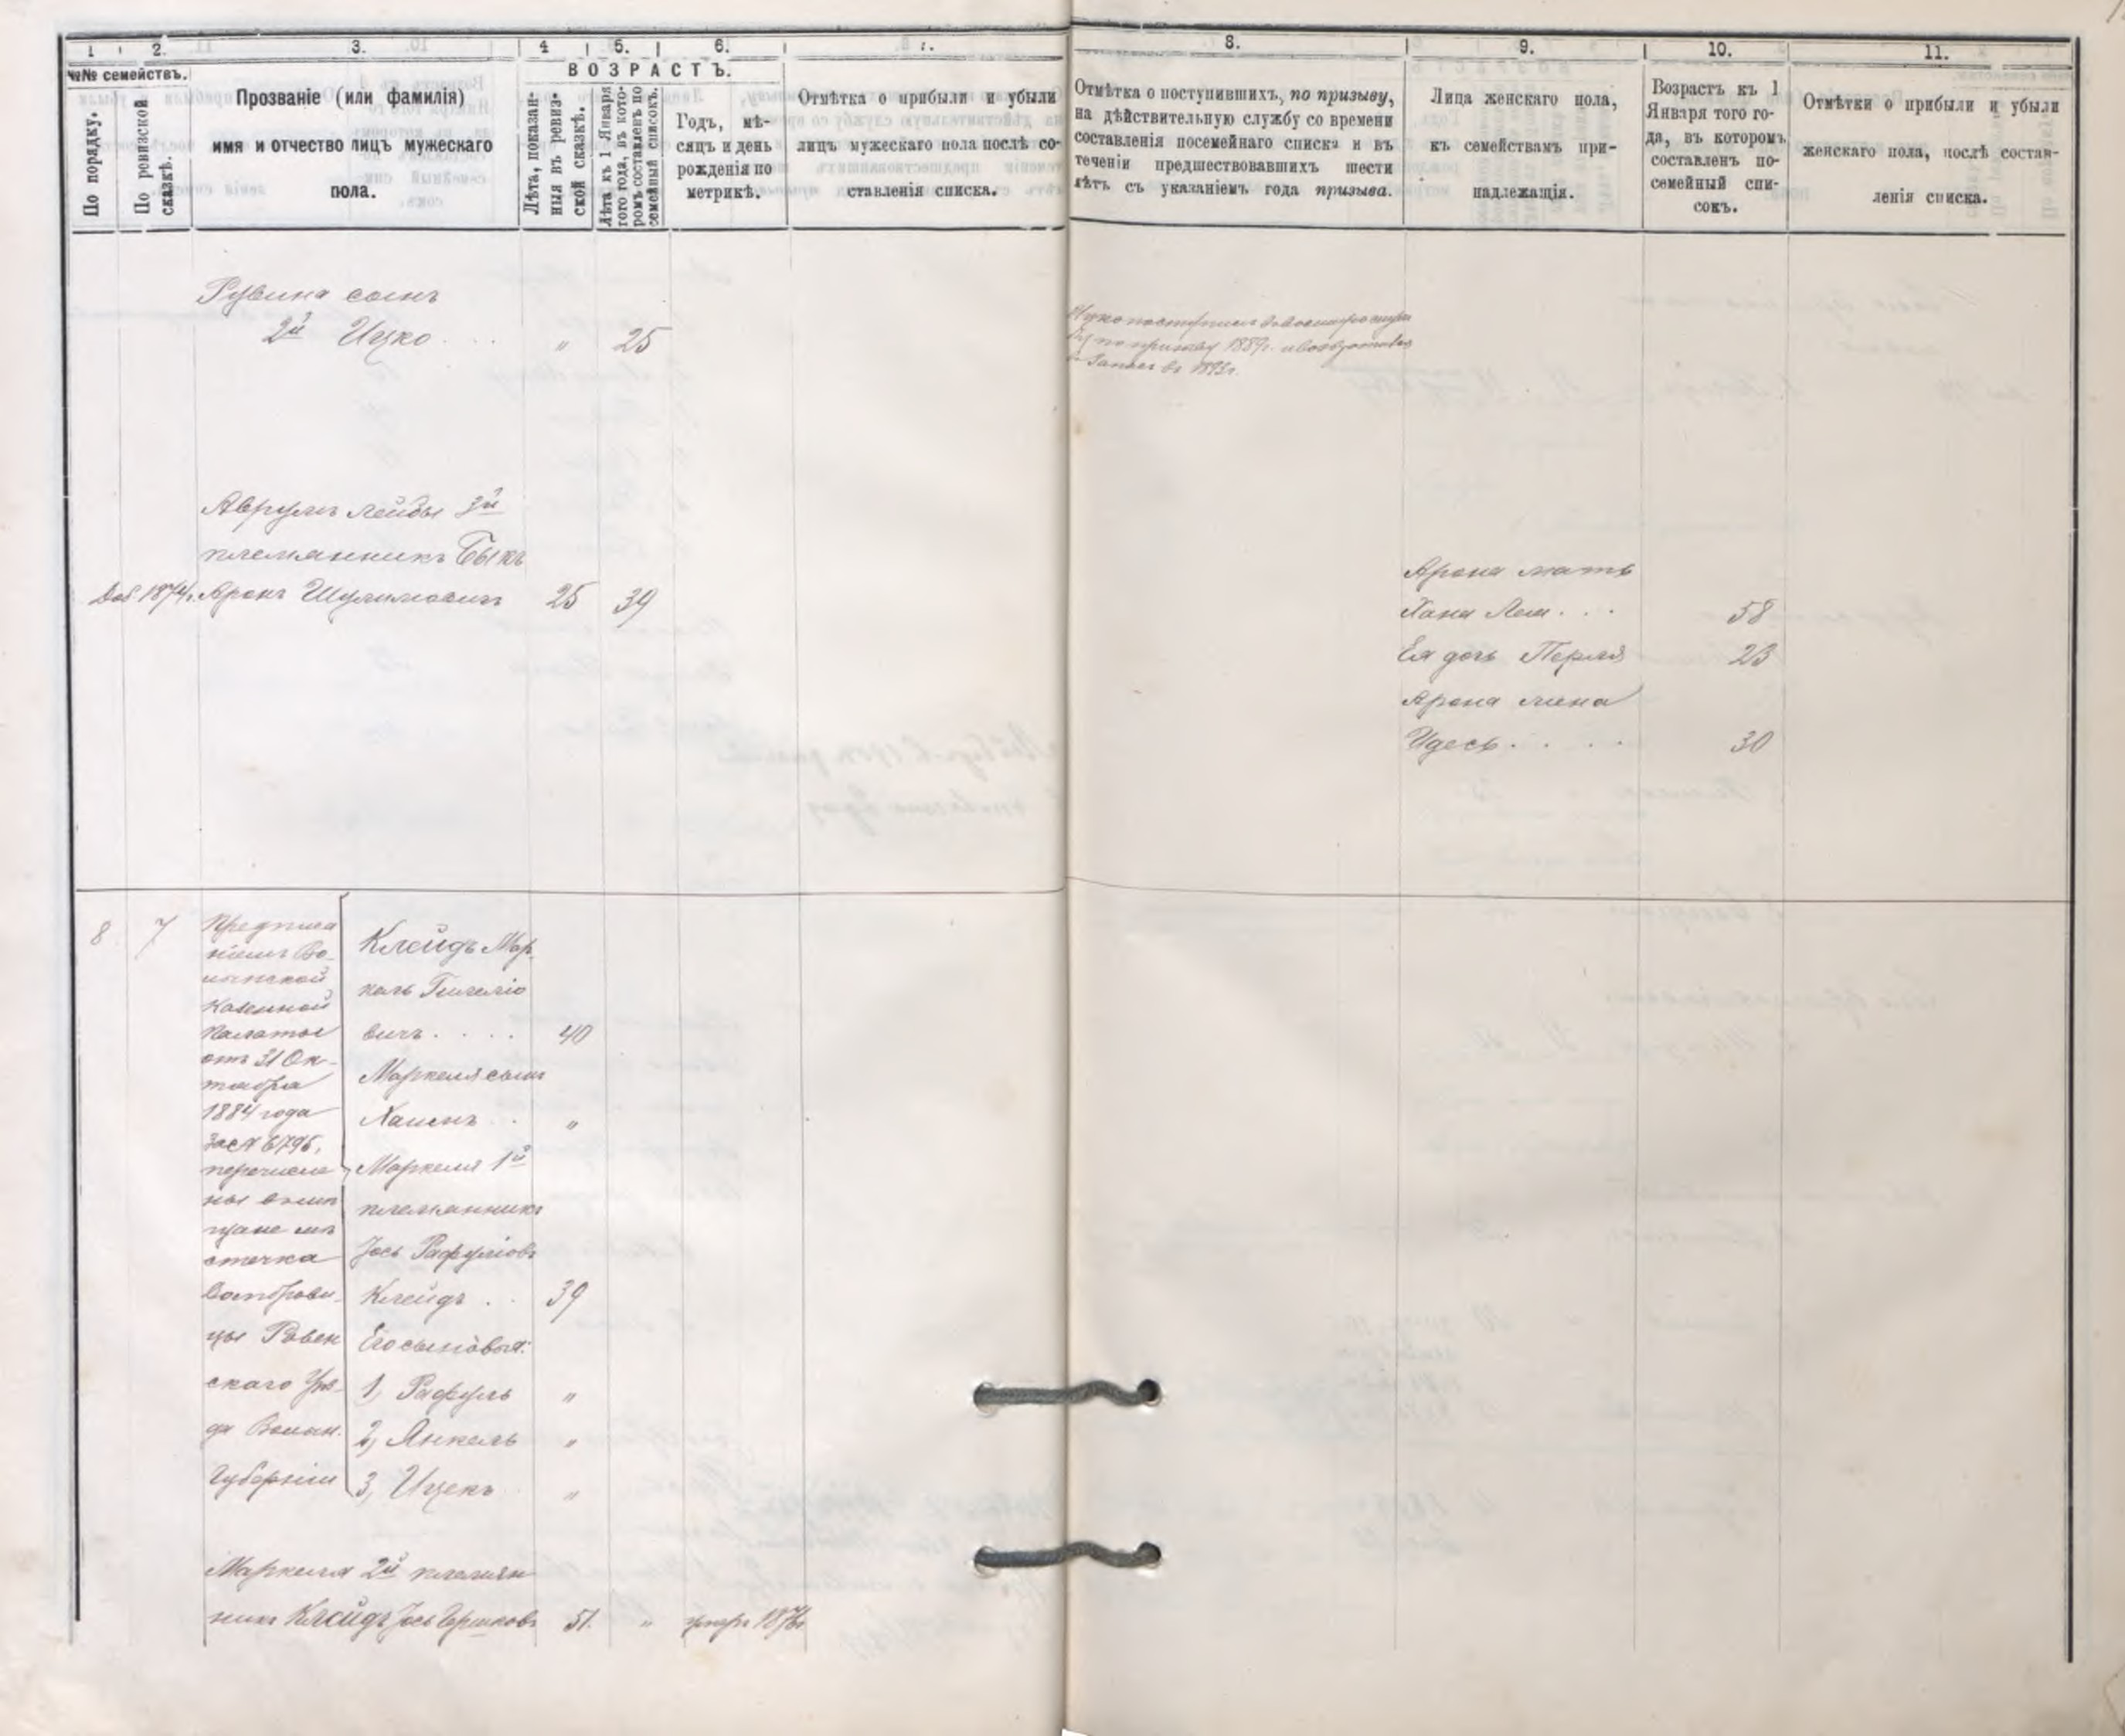 1
2.
3.
4
5.
6.
7.
8.
9.
10.
11.
№№ семействъ.
По порядку.
По ревизской сказкѣ.
Прозваніе (или фамилія)
имя и отчество лицъ мужескаго
пола.
ВОЗРАСТЪ.
Лѣта, показан-
ныя въ ревиз-
ской сказкѣ.
Лѣта къ 1 Января
того года, въ кото-
ромъ составленъ по
семейный списокъ.
Годъ, мѣ-
сяцъ и день
рожденія по
метрикѣ.
Отмѣтка о прибыли и убыли
лицъ мужескаго пола послѣ со-
ставленія списка.
Отмѣтка о поступившихъ, по призыву,
на дѣйствительную службу со времени
составленія посемейнаго списка и въ
теченіи предшествовавшихъ шести
лѣтъ съ указаніемъ года призыва.
Лица женскаго пола,
къ семействамъ при-
надлежащія.
Возрастъ къ 1
Января того го-
да, въ которомъ
составленъ по-
семейный спи-
сокъ.
Отмѣтки о прибыли и убыли
женскаго пола, послѣ состав-
ленія списка.
Рувина сынъ
2й Ицко . . . " 25
по призыву 1889г. и возвратился
въ запасъ въ 1893г.
Аврумъ Лейбы 3й
племянникъ Быкъ
Доб. 1874г. Аронъ Шулимовичъ 25 39
Арона мать
Хана Лея . . . 58
Ея дочь Перля 23
Арона жена
Идесь . . . . 30
8 7
Предписа
ніемъ Во-
лынской
Казенной
Палаты
отъ 31 Ок-
тября
1884 года
за № 6796,
перечисле
ны въ мѣ
щане мѣ
стечка
Домброви-
цы Ровен
скаго Уѣз-
да Волын.
Губерніи
Клейдъ Мар-
кель Гиселіо
вичъ . . . . 40
Маркеля сынъ
Хаимъ . . "
Маркеля 1й
племянникъ
Іось Рафуліовъ
Клейдъ . . 39
Его сыновья:
1, Рафуль "
2, Янкель "
3, Ицекъ "
Маркеля 2й племян
никъ Клейдъ Іось Гершковъ 51. " умеръ 1876г